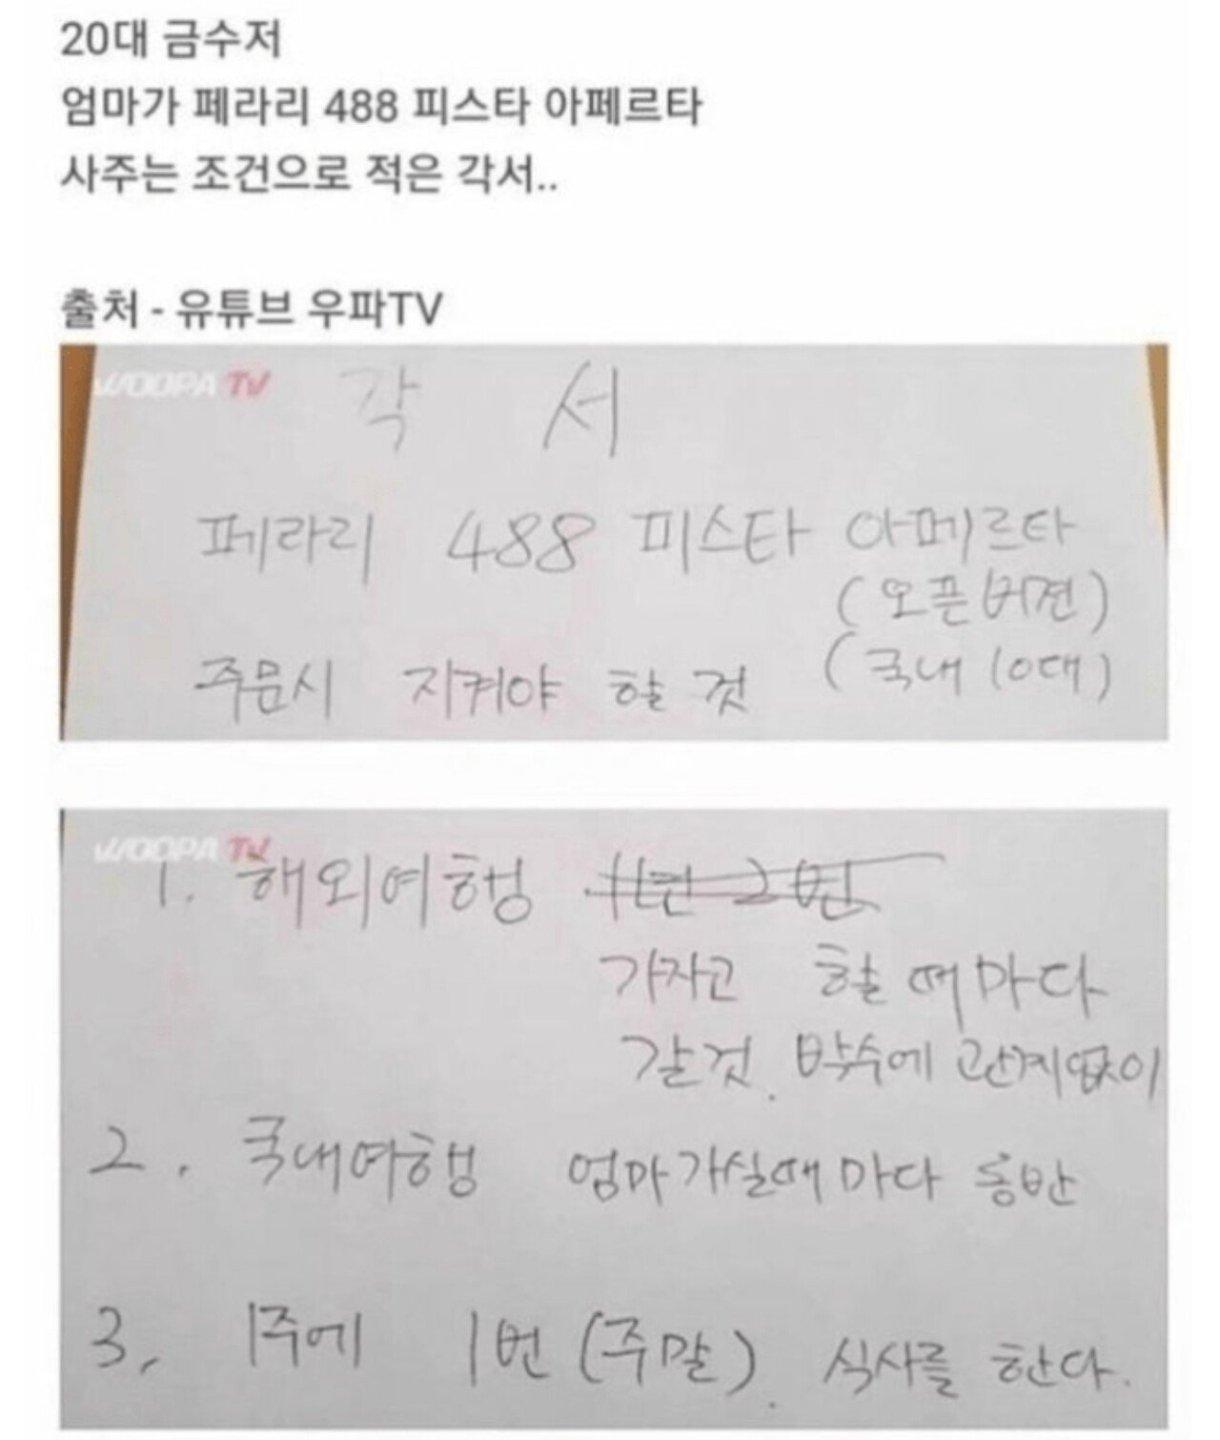 20대 금수저
엄마가 페라리 488 피스타 아페르타
사주는 조건으로 적은 각서..
출처 - 유튜브 우파TV
WOOPA TV
각 서
페라리 488 피스타 아페르타
(오픈버젼)
주문시 지켜야 할 것 (국내 10대)
WOOPA TV
1. 해외여행 1년 2번
가자고 할 때마다
갈것. 박수에 관계없이
2. 국내여행 엄마가실때마다 동반
3, 1주에 1번 (주말). 식사를 한다.